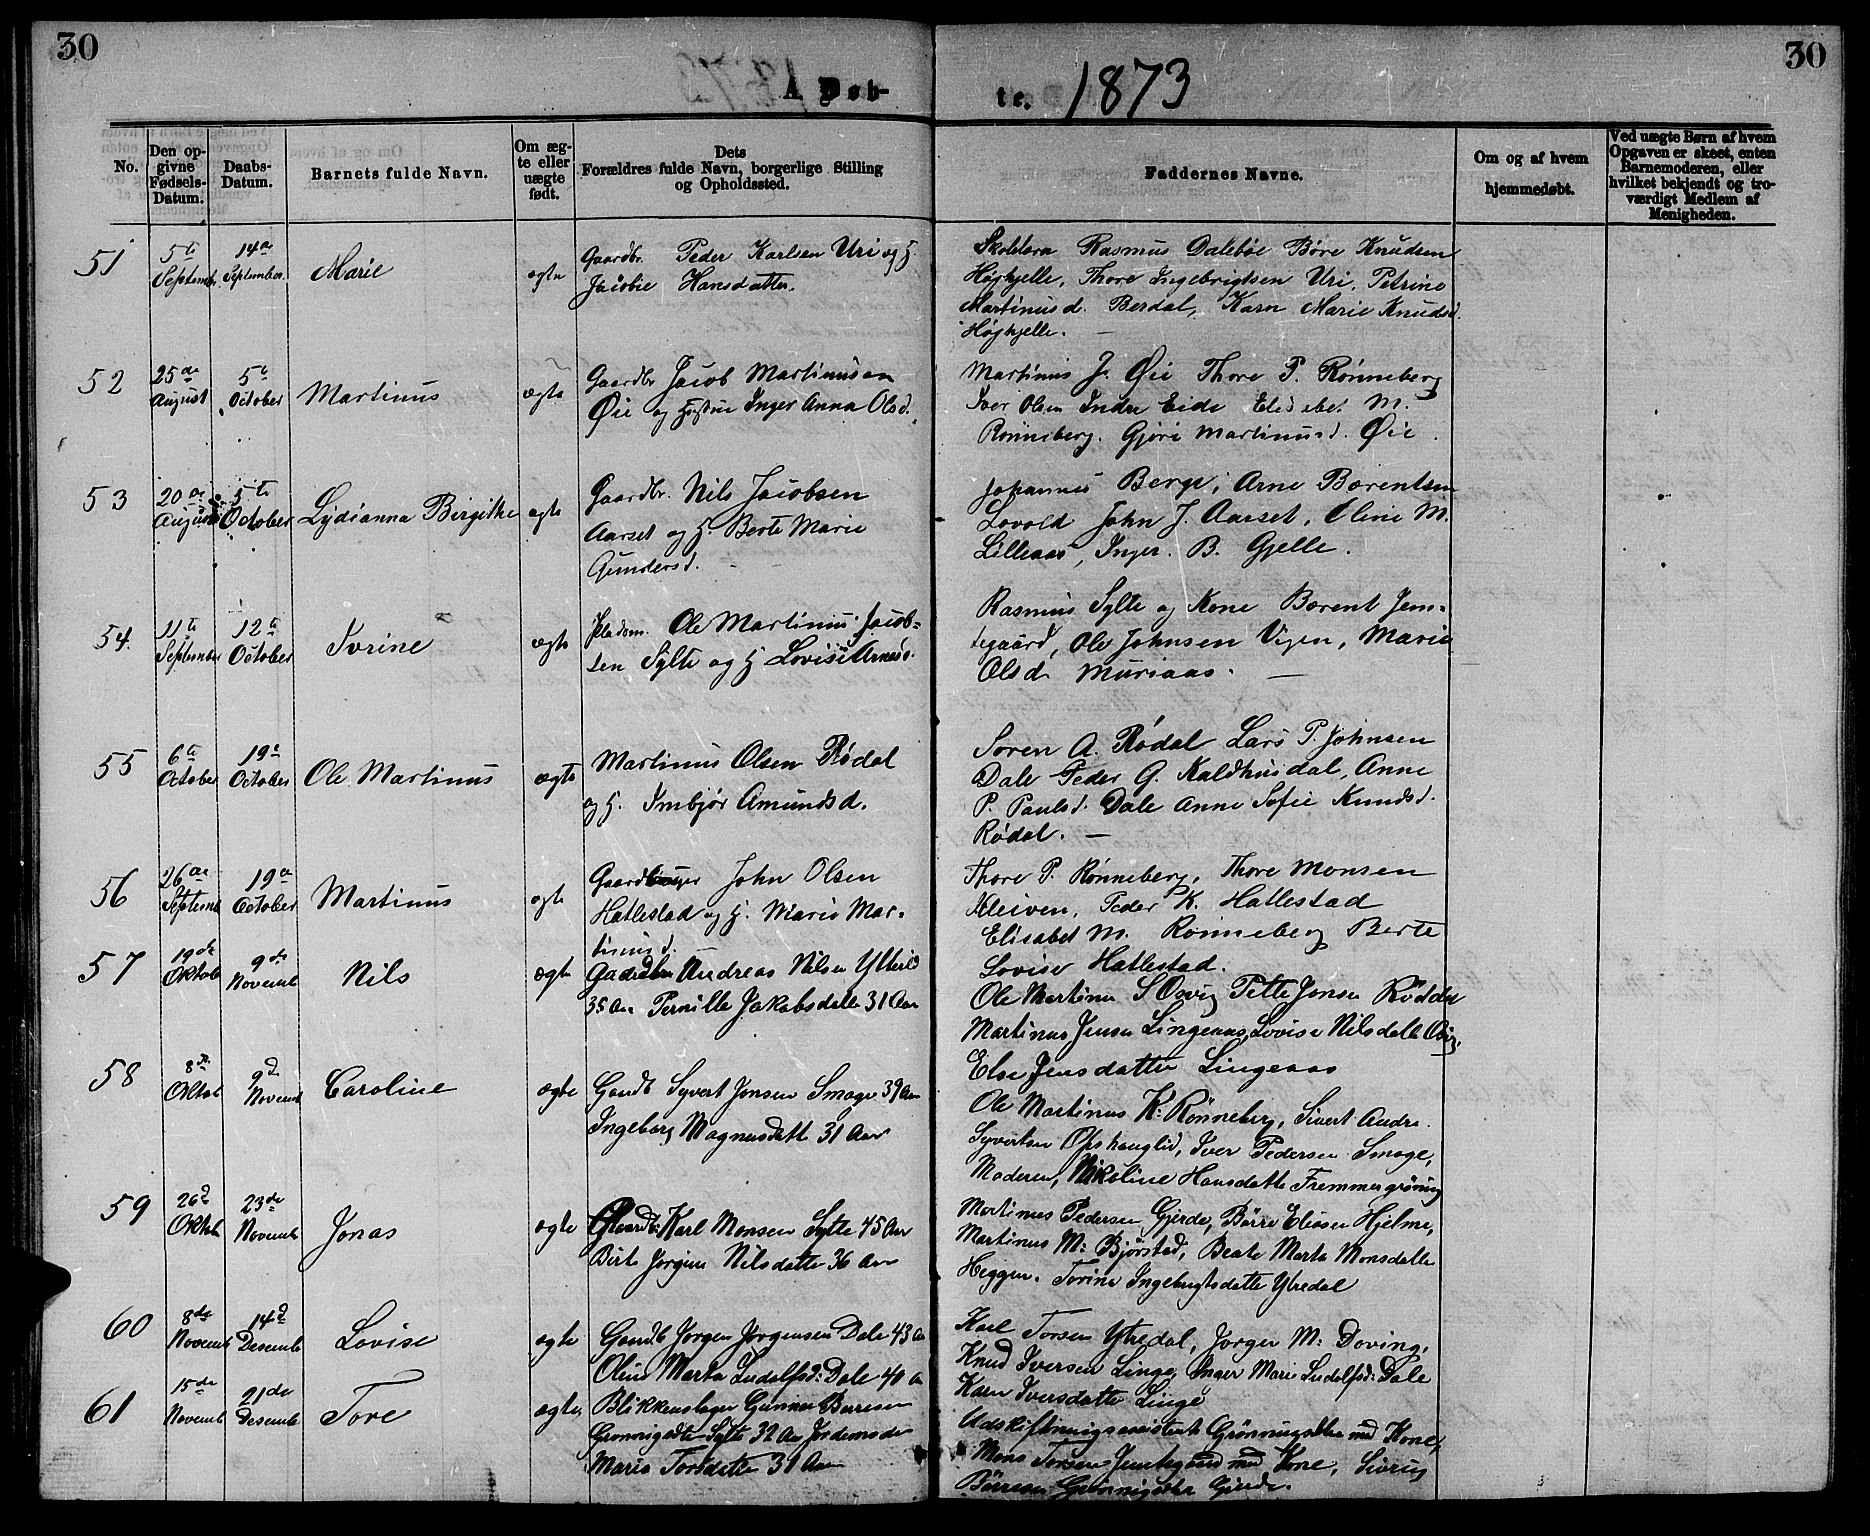 30
30
A Døb-
te. 1873
No.
Den op-
givne
Fødsels-
Datum.
Daabs-
Datum.
Barnets fulde Navn.
Om æg-
te eller
uægte
født.
Dets
Forældres fulde Navn, borgerlige Stilling
og Opholdssted.
Faddernes Navne.
Om og af hvem
hjemmedøbt.
Ved uægte Børn af hvem
Opgaven er skeet, enten
Barnemoderen, eller
hvilket bekjendt og tro-
værdigt Medlem af
Menigheden.
51
5te
Septemb.
14de
September
Marie
ægte
Gaardbr. Peder Karlsen Uri og H.
Jacobie Hansdatter.
Skolelærer Rasmus Dalebøe Børe Knudsen
Høghjelle, Thore Ingebrigtsen Uri, Petrine
Martinusd. Berdal, Karn Marie Knudsd.
Høghjelle.
52
25de
August
5te
October
Martinus
ægte
Gaardbr Jacob Martinusen
Øie og Hustru Inger Anna Olsd.
Martinus J. Øie Thore P. Rønneberg
Iver Olsen Indre Eide Elisabet M.
Rønneberg. Gjøri Martinusd. Øie.
53
20de
August
5te
October
Lydianna Birgithe
ægte
Gaardbr. Nils Jacobsen
Aarset og H. Berte Marie
Gundersd.
Johannes Berge, Arne Borentsen
Lovold John J. Aarset, Oline M.
Lilleaas, Inger. B. Gjelle.
54.
11te
September
12te
October
Ivrine
ægte
Pladsm. Ole Martinus Jacob-
sen Sylte og H Lovise Arnesd.
Rasmus Sylte og Kone Borent Jem-
tegaard, Ole Johnsen Vigen, Marie
Olsd Muriaas.
55
6te
October
19e
October
Ole Martinus
ægte
Martinus Olsen Rødal
og H. Imbjør Amundsd.
Soren A. Rødal Lars P. Johnsen
Dale Peder G. Kaldhusdal, Anne
P. Paulsd. Dale Anne Sofie Knudsd.
Rødal.
56
26de
Septemb
19de
October
Martinus
ægte
Gaardbruger John Olsen
Hatlestad og H. Marie Mar-
tinusd.
Thore P. Rønneberg, Thore Monsen
Kleiven, Peder K. Hatlestad
Elisabet M. Rønneberg Berte
Lovise Hatlestad.
57
19de
Oktob
9de
Novemb
Nils
ægte
Andreas Nilsen Ytterli
35 Aar Pernille Jakobsdatte 31 Aar
Ole Martinus S Petter Jonsen Rødder
Martinus Jensen Lingeaas, Lovise Nilsdatte
Else Jensdatter Lingeaas
58
8de
Oktob
9d
Novemb
Caroline
ægte
Gaardb Syvert Jonsen Smoge 39 Aar
Ingeborg Magnusdatte 31 Aar
Ole Martinus K: Rønneberg, Sivert Andre.
Syvertsen Opshauglid, Iver Pedersen Smoge,
Moderen, Nikoline Hansdatte Fremmergrøning
59
26d
Oktob
23de
Novemb
Jonas
ægte
Gaardb Karl Monsen Sylte 45 Aar
Birte Jorgine Nilsdatte 36 Aar
Martinus Pedersen Gjerde, Børre Eliasen Hjelme,
Martinus M: Bjørstad, Beate Marta Monsdatte
Heggen. Torine Ingebrigtsdatte Ytredal
60
8de
Novemb
14d
Desemb
Lovise
ægte
Gaardb Jørgen Jørgensen Dale 43 Aar
Oline Marta Ludolfsd: Dale 40 Aar
Karl Torsen Ytredal, Jørgen M: Døving,
Knud Iversen Linge, Inger Marie Ludolfsd: Dale
Karn Iversdatte Linge
61
15de
Novemb
21de
Desemb
Tore
ægte
Blikkenslager Gunner Børresen
Grønnigsæter Sylte 32 Aar
Marie Torsdatte 31 Aar
Udskiftningsassistent Grønningsæter med Kone,
Mons Torsen Jemtegaard med Kone, Sivrig
Børresen Grønnigsæter Gjerde.